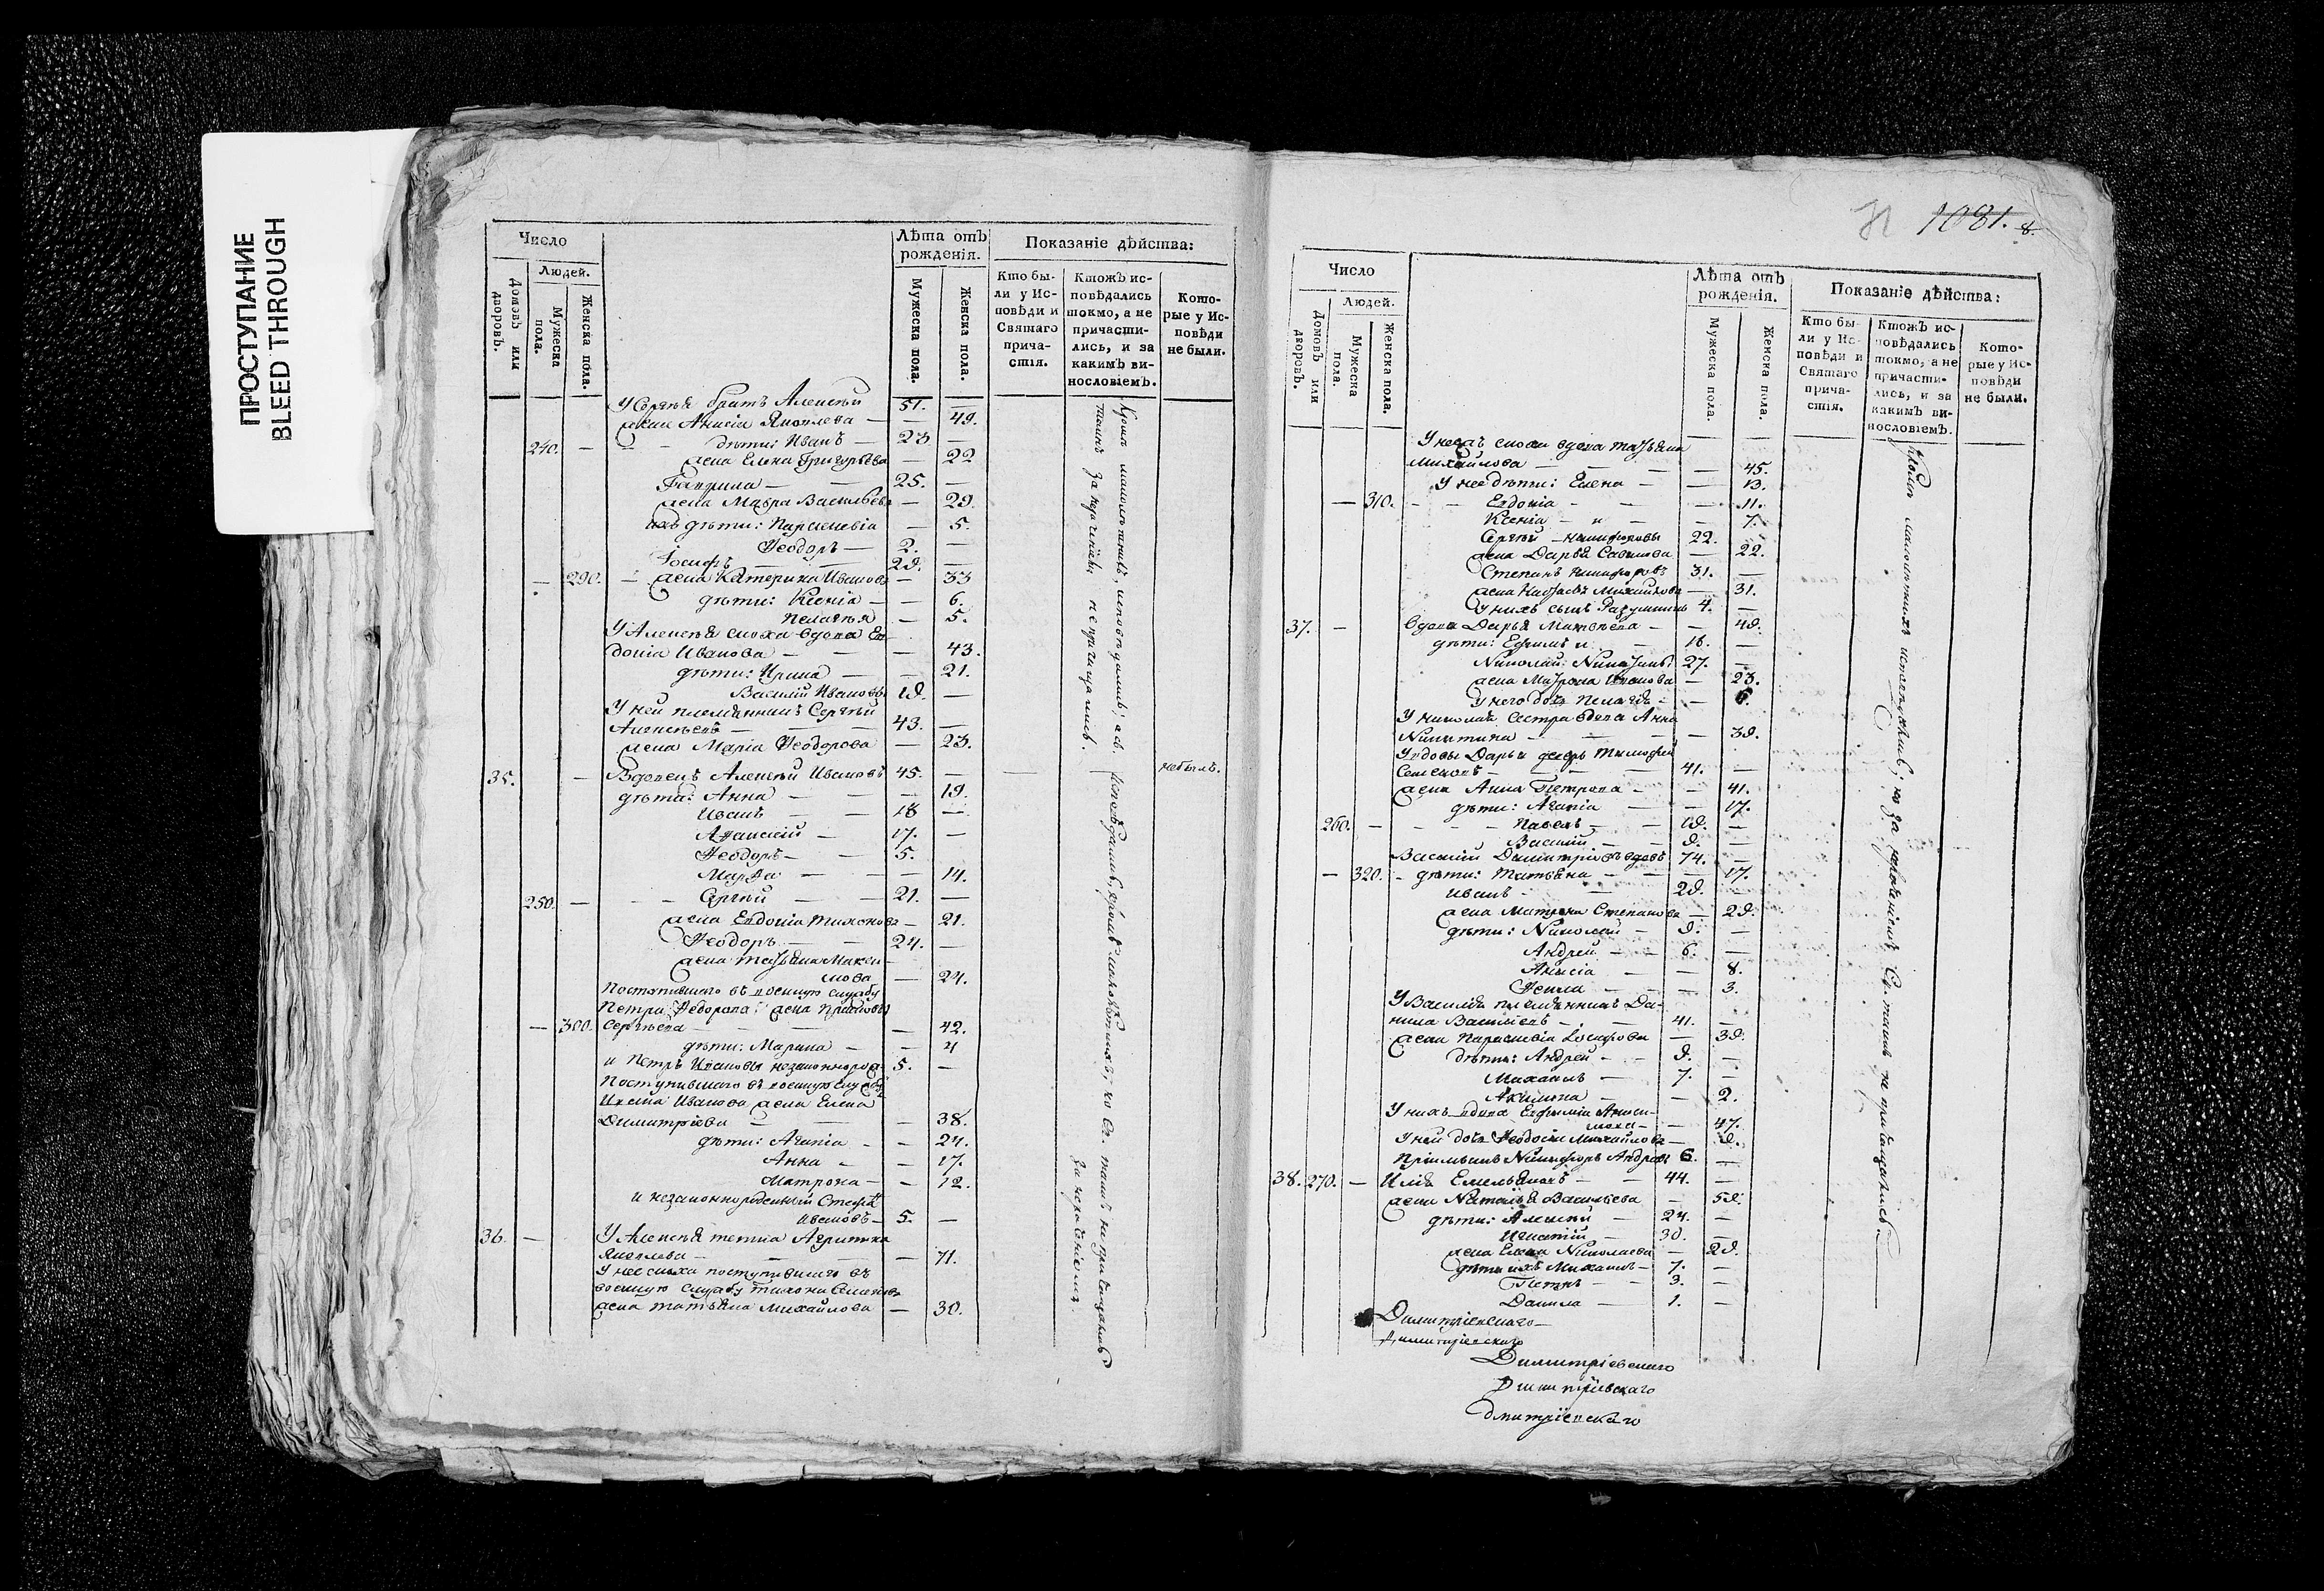 ПРОСТУПАНИЕ
BLEED THROUGH
Число
Людей.
Домовъ или дворовъ.
Мужеска пола.
Женска пола.
Лѣта отъ рожденія.
Мужеска пола.
Женска пола.
Показаніе дѣйства:
Кто бы-
ли у Ис-
повѣди и
Святаго
прича-
стія.
Ктожъ ис-
повѣдались
токмо, а не
причасти-
лись, и за
какимъ ви-
нословіемъ.
Кото-
рые у Ис-
повѣди
не были.
У Сергѣя братъ Алексѣй 51. —
жена Анисія Яковлева — — 49.
240. — дѣти: Иванъ — 23 —
жена Елена Григорьева — 22
Гаврила — 25. —
жена Мавра Васильева — 29.
ихъ дѣти: Параскевія — 5.
Ѳеодоръ — 2. —
Іосифъ — 29. —
— 290. — жена Катерина Иванова — 33
дѣти: Ксенія — — 6.
Пелагея — 5.
У Алексѣя сноха вдова Ев-
докія Иванова — — 43.
дѣти: Ирина — — 21.
Василій Ивановъ 19. —
У ней племянникъ Сергѣй
Алексѣевъ — 43. —
жена Марія Ѳеодорова — 23.
35. — Вдовецъ Алексѣй Ивановъ 45. — — небылъ.
дѣти: Анна — — 19.
Иванъ — 18 —
Аѳанасій — 17. —
Ѳеодоръ — 5.
Марѳа — — 14.
250. — Сергѣй — 21. —
жена Евдокія Тихонова — 21.
Ѳеодоръ — 24. —
жена Татьяна Макси-
мова — 24.
Поступившаго въ военную службу
Петра Ѳедорова жена Прасковья
— 300. Сергѣева — — 42.
дѣти: Марина — — 4
и Петръ Ивановы незаконнорожд. 5. —
Поступившаго въ военную службу
Ивана Иванова жена Елена
Димитріева — — 38.
дѣти: Агапія — — 24.
Анна — — 17.
Матрона — — 12.
и незаконнорожденный Стефанъ
Ивановъ — 5. —
36. — У Алексѣя тетка Агрипина
Яковлева — — 71.
У нее сноха поступившаго въ
военную службу Тихона Семенова
жена Татьяна Михайлова — 30.
Кромѣ малолѣтныхъ, исповѣдались, а св.
таинъ за нераченіемъ не причащались.
Исповѣдались, кромѣ малолѣтныхъ, но св. таинъ не причащались
за нераченіемъ.
1081.
Число
Людей.
Домовъ или дворовъ.
Мужеска пола.
Женска пола.
Лѣта отъ рожденія.
Мужеска пола.
Женска пола.
Показаніе дѣйства:
Кто бы-
ли у Ис-
повѣди и
Святаго
прича-
стія.
Ктожъ ис-
повѣдались
токмо, а не
причасти-
лись, и за
какимъ ви-
нословіемъ.
Кото-
рые у Ис-
повѣди
не были.
сноха вдова Татьяна
Михайлова — — 45.
У нее дѣти: Елена — — 13.
— 310. — Евдокія — — 11.
Ксенія — и — 7.
Сергѣй Никифоровы 22.
жена Дарья Савинова — 22.
Степанъ Никифоровъ 31. —
жена Настасья Михайлова — 31.
У нихъ сынъ 4. —
37. — Вдова Дарья Матвѣева — 49.
дѣти: Ефимъ и — 16. —
Николай Никитины 27. —
жена Матрона Иванова — 23.
у него дочь Пелагія — 6.
У Николая сестра вдова Анна
Никитина — — 39.
У вдовы Дарьи деверь Тимофей
Семеновъ — 41. —
жена Анна Петрова — — 41.
дѣти: Агапія — — 17.
260. — Павелъ — 19. —
Василій — 9. —
Василій Димитріевъ вдовъ 74. —
— 320. — дѣти: Татьяна — — 17.
Иванъ — 29. —
жена Матрена Степанова — 29.
дѣти: Николай — 9. —
Андрей — 6. —
Анисія — — 8.
Ѳекла — — 3.
У Василія племянникъ Да-
нила Васильевъ — 41. —
жена Параскевія Іосифова — 39.
дѣти: Андрей — 9. —
Михаилъ — 7. —
Акилина — — 2.
У нихъ вдова Евфимія Аниси-
мова — 47.
У ней дочь Ѳеодосія Михайлова — 9.
Пріемышъ Никифоръ Андреевъ 6. —
38. 270. — Илія Емельяновъ — 44. —
жена Наталья Васильева — 59.
дѣти: Алексѣй — 24. —
Игнатій — 30. —
жена Елена Николаева — 29.
дѣти ихъ Михаилъ — 7. —
Петръ — 3. —
Данила — 1. —
Кромѣ малолѣтныхъ исповѣдались, но за нераченіемъ Св. таинъ не причащались.
Димитріевскаго
Димитріевскаго
Димитріевскаго
Димитріевскаго
Дмитріевскаго